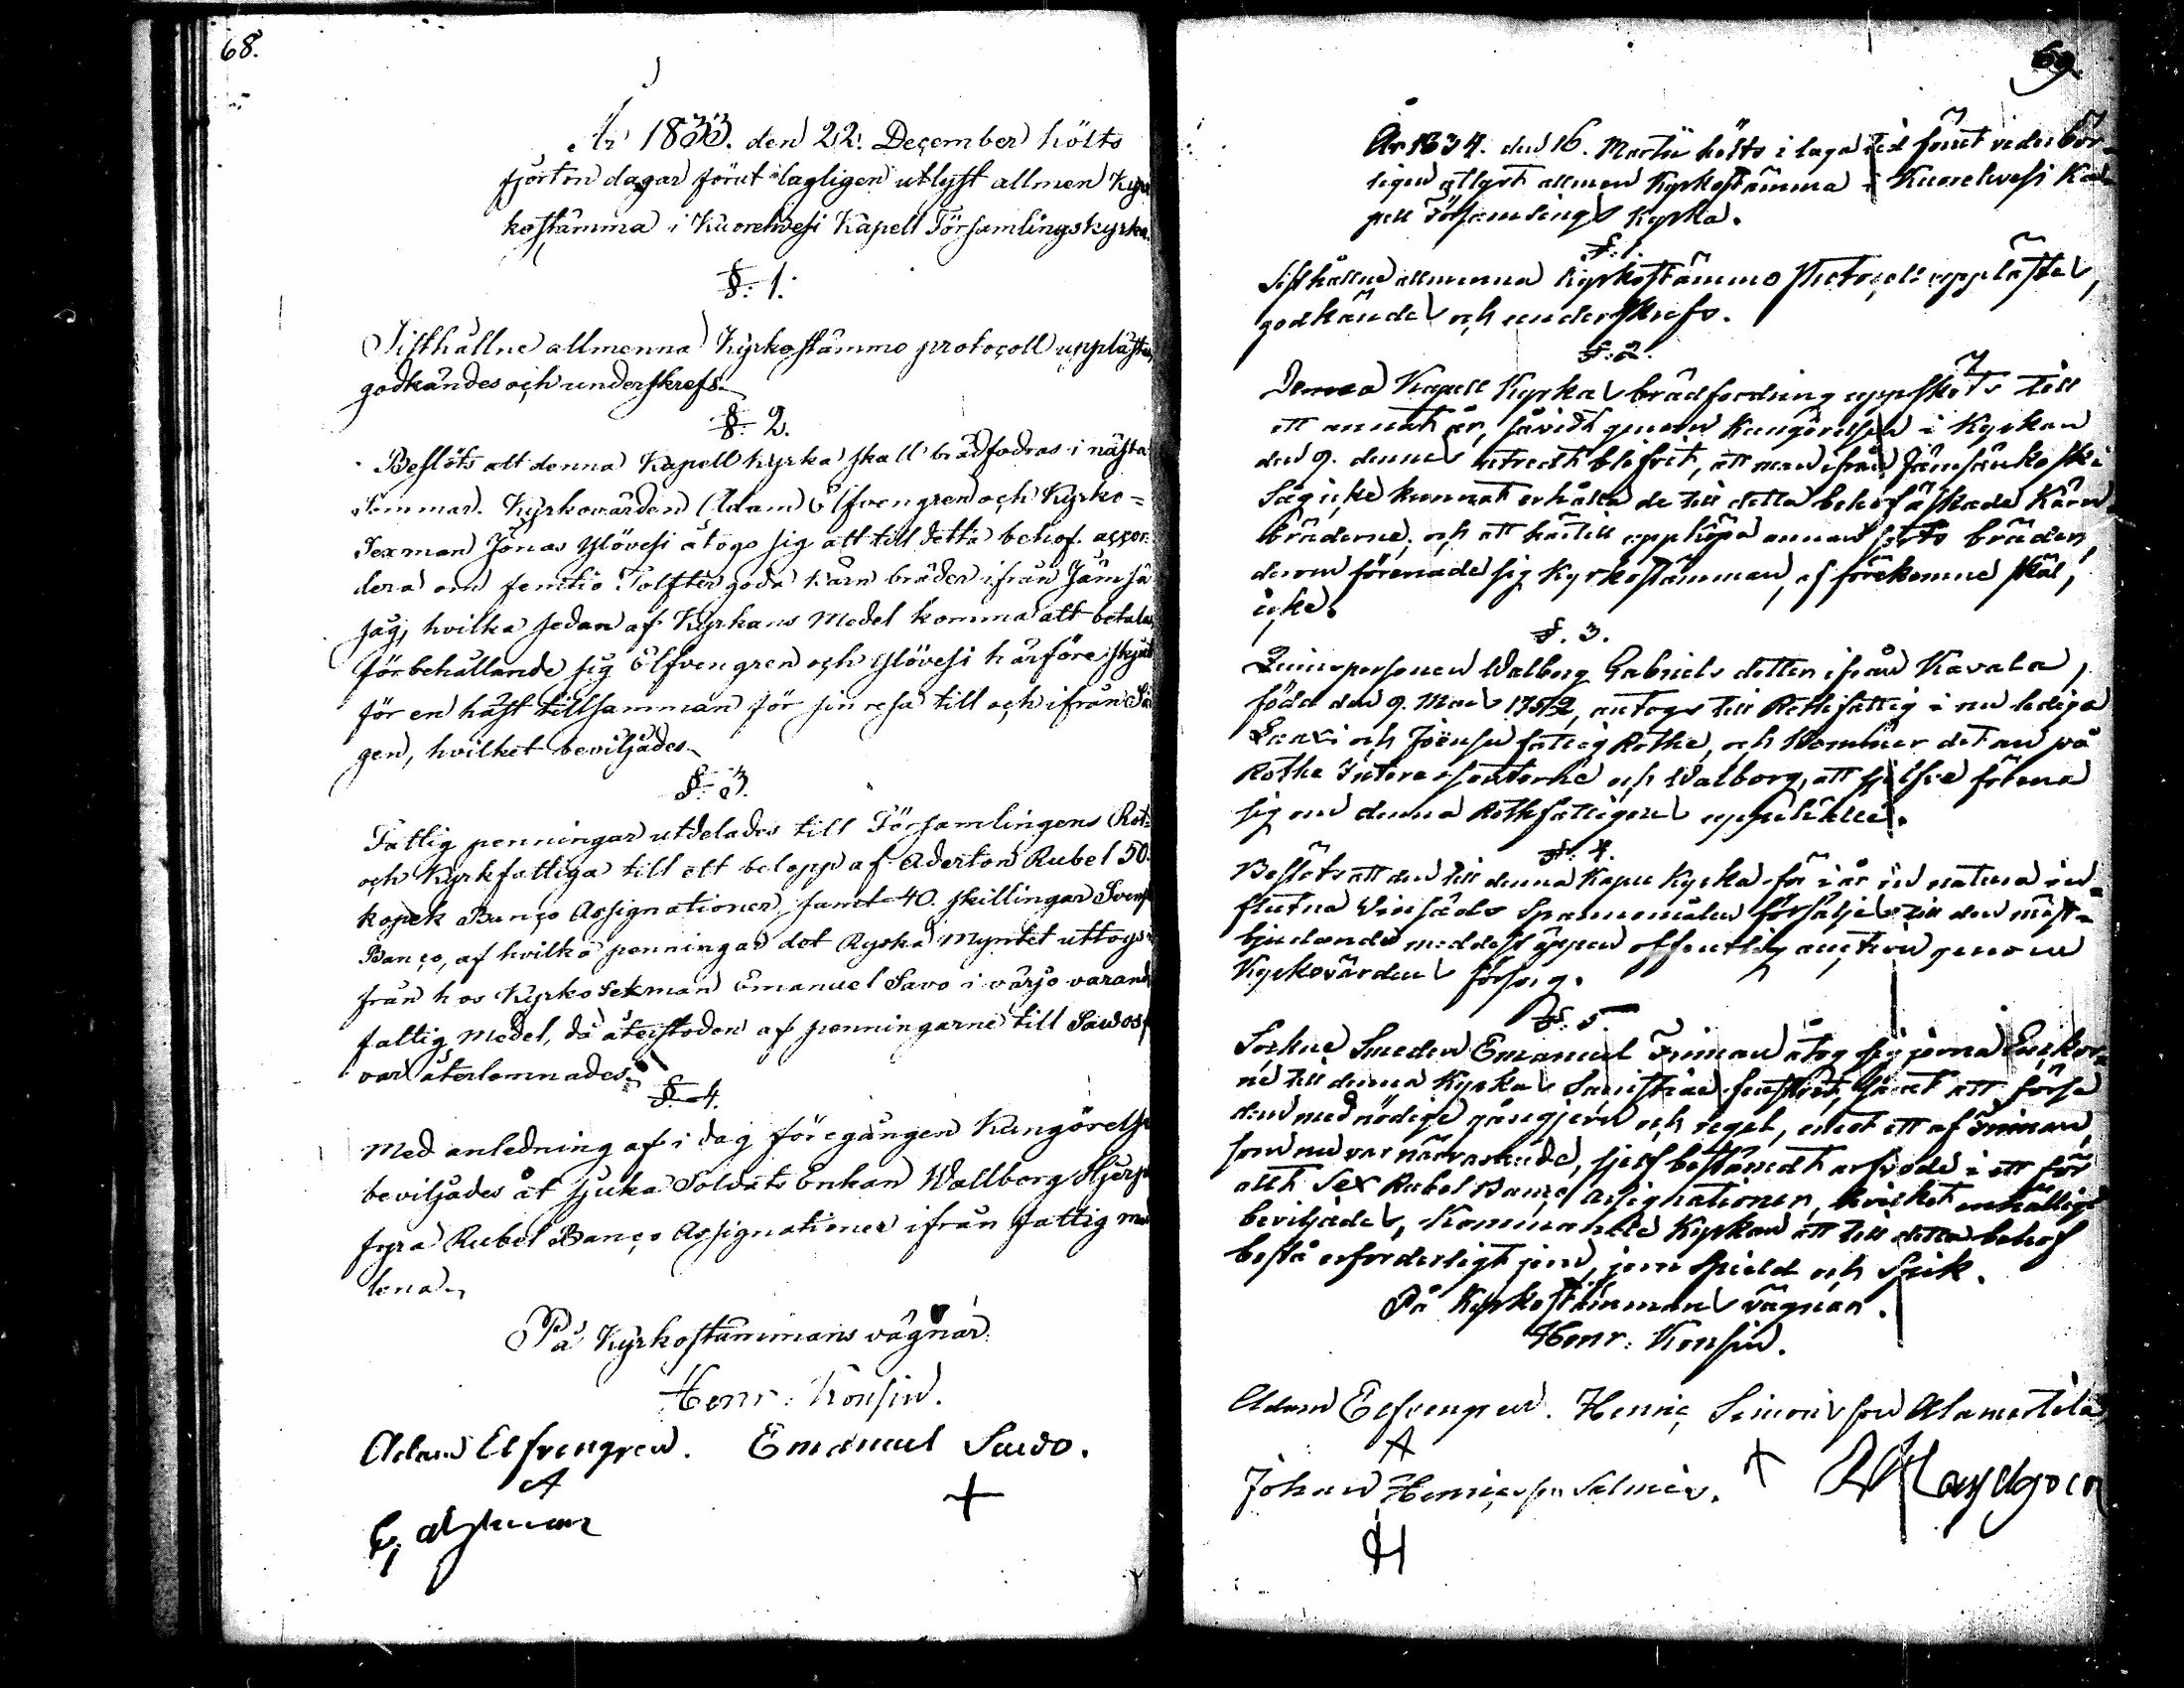 68.
År 1833. den 22. December hölts
fjorton dagar förut lagligen utlyst allmen Kyr
kostämma i Kuorehvesi Kapell Församlingskyrka.
§. 1.
Sisthållne allmenna Kyrkostämmo protocoll upplästes,
godkändes och underskrefs.
§. 2.
Beslöts att denna Kapell kyrka skall brädfodras i nästa
Sommar. Kyrkovärden Adam Elfvengren och Kyrko=
Sexman Jonas Ylövesi åtogo sig att till detta behof accor-
dera om femtio Tolfter goda Kärn bräder ifrån Jämsä
såg, hvilka sedan af Kyrkans Medel komma att betalas,
förbehållande sig Elfvengren och Ylövesi härföre skjuts
för en häst tillsamman för sin resa till och ifrån Så
gen, hvilket beviljades.
§. 3.
Fattig penningar utdelades till Församlingens Rot=
och Kyrkfattiga till ett belopp af Aderton Rubel 50.
kopek Banco Assignationer samt 40. skillingar Svensk
Banco, af hvilka penningar det Ryska Myntet uttogs i
från hos Kyrko Sexman Emanuel Savo i värjo varande
fattig Medel, då återstoden af penningarne till Savos för
var återlemnades.
§. 4.
Med anledning af i dag föregången Kungörelse
beviljades åt sjuka Soldats Enkan Wallborg Hjerpe
fyra Rubel Banco Assignationer ifrån fattig me
lena.
På Kyrkostämmans vägnar:
Henr: Konsin.
Adam Elfvengren. Emanuel Savo.
A +
69.
År 1834. den 16. Martii hölts i laga tid förut vederbör-
ligen utlyst allmen Kyrkostämma i Kuorehvesi Ka-
pell Församlings Kyrka.
§. 1.
Sisthållne allmenna Kyrkostämmo Protocoll upplästes,
godkändes och underskrefs.
§. 2.
Denna Kapell Kyrkas brädfodring uppsköts till
ett annat år, såvidt genom Kungörelsen i Kyrkan
den 9. dennes utredt blifvit, att man ifrån Jämsänkoski
Såg icke kunnat erhålla de till detta behof äskade Kärn
bräderne, och att härtill uppköpa annan sorts bräder,
derom förenade sig Kyrkostämman, af förekomne skäl,
icke.
§. 3.
Qvinspersonen Walborg Gabriels dotter ifrån Kavala,
född den 9. Maii 1752, antogs till Rothfattig i nu lediga
och fattig Rothe, och kommer det an på
Rothe Interessenterne och Walborg, att sjelfve förena
sig om denna Rothfattigens uppehälle.
§. 4.
Beslöts att den till denna Kapell Kyrka för i år in natura in-
flutna Vinsäds Spannemålen försäljes till den mäst-
bjudande medelst öppen offentlig auction genom
Kyrkovärdens försorg.
§. 5.
Sockne Smeden Emanuel Friman åtog sig
till denna Kyrkas Sacristiae fenster, samt att förse
dem med nödige gångjern och regel, emot ett af Friman,
som nu var närvarande, sjelf bestämdt arfvode i ett för
allt Sex Rubel Banco Assignationer, hvilket enhälligt
beviljades, Kommande Kyrkan att till detta behof
bestå erforderligt jern, jern och Spik.
På Kyrkostämmans vägnar.
Henr: Konsin.
Adam Elfvengren. Henric Simons son Alamertela
A +
Johan Henrics son Salmis.
H